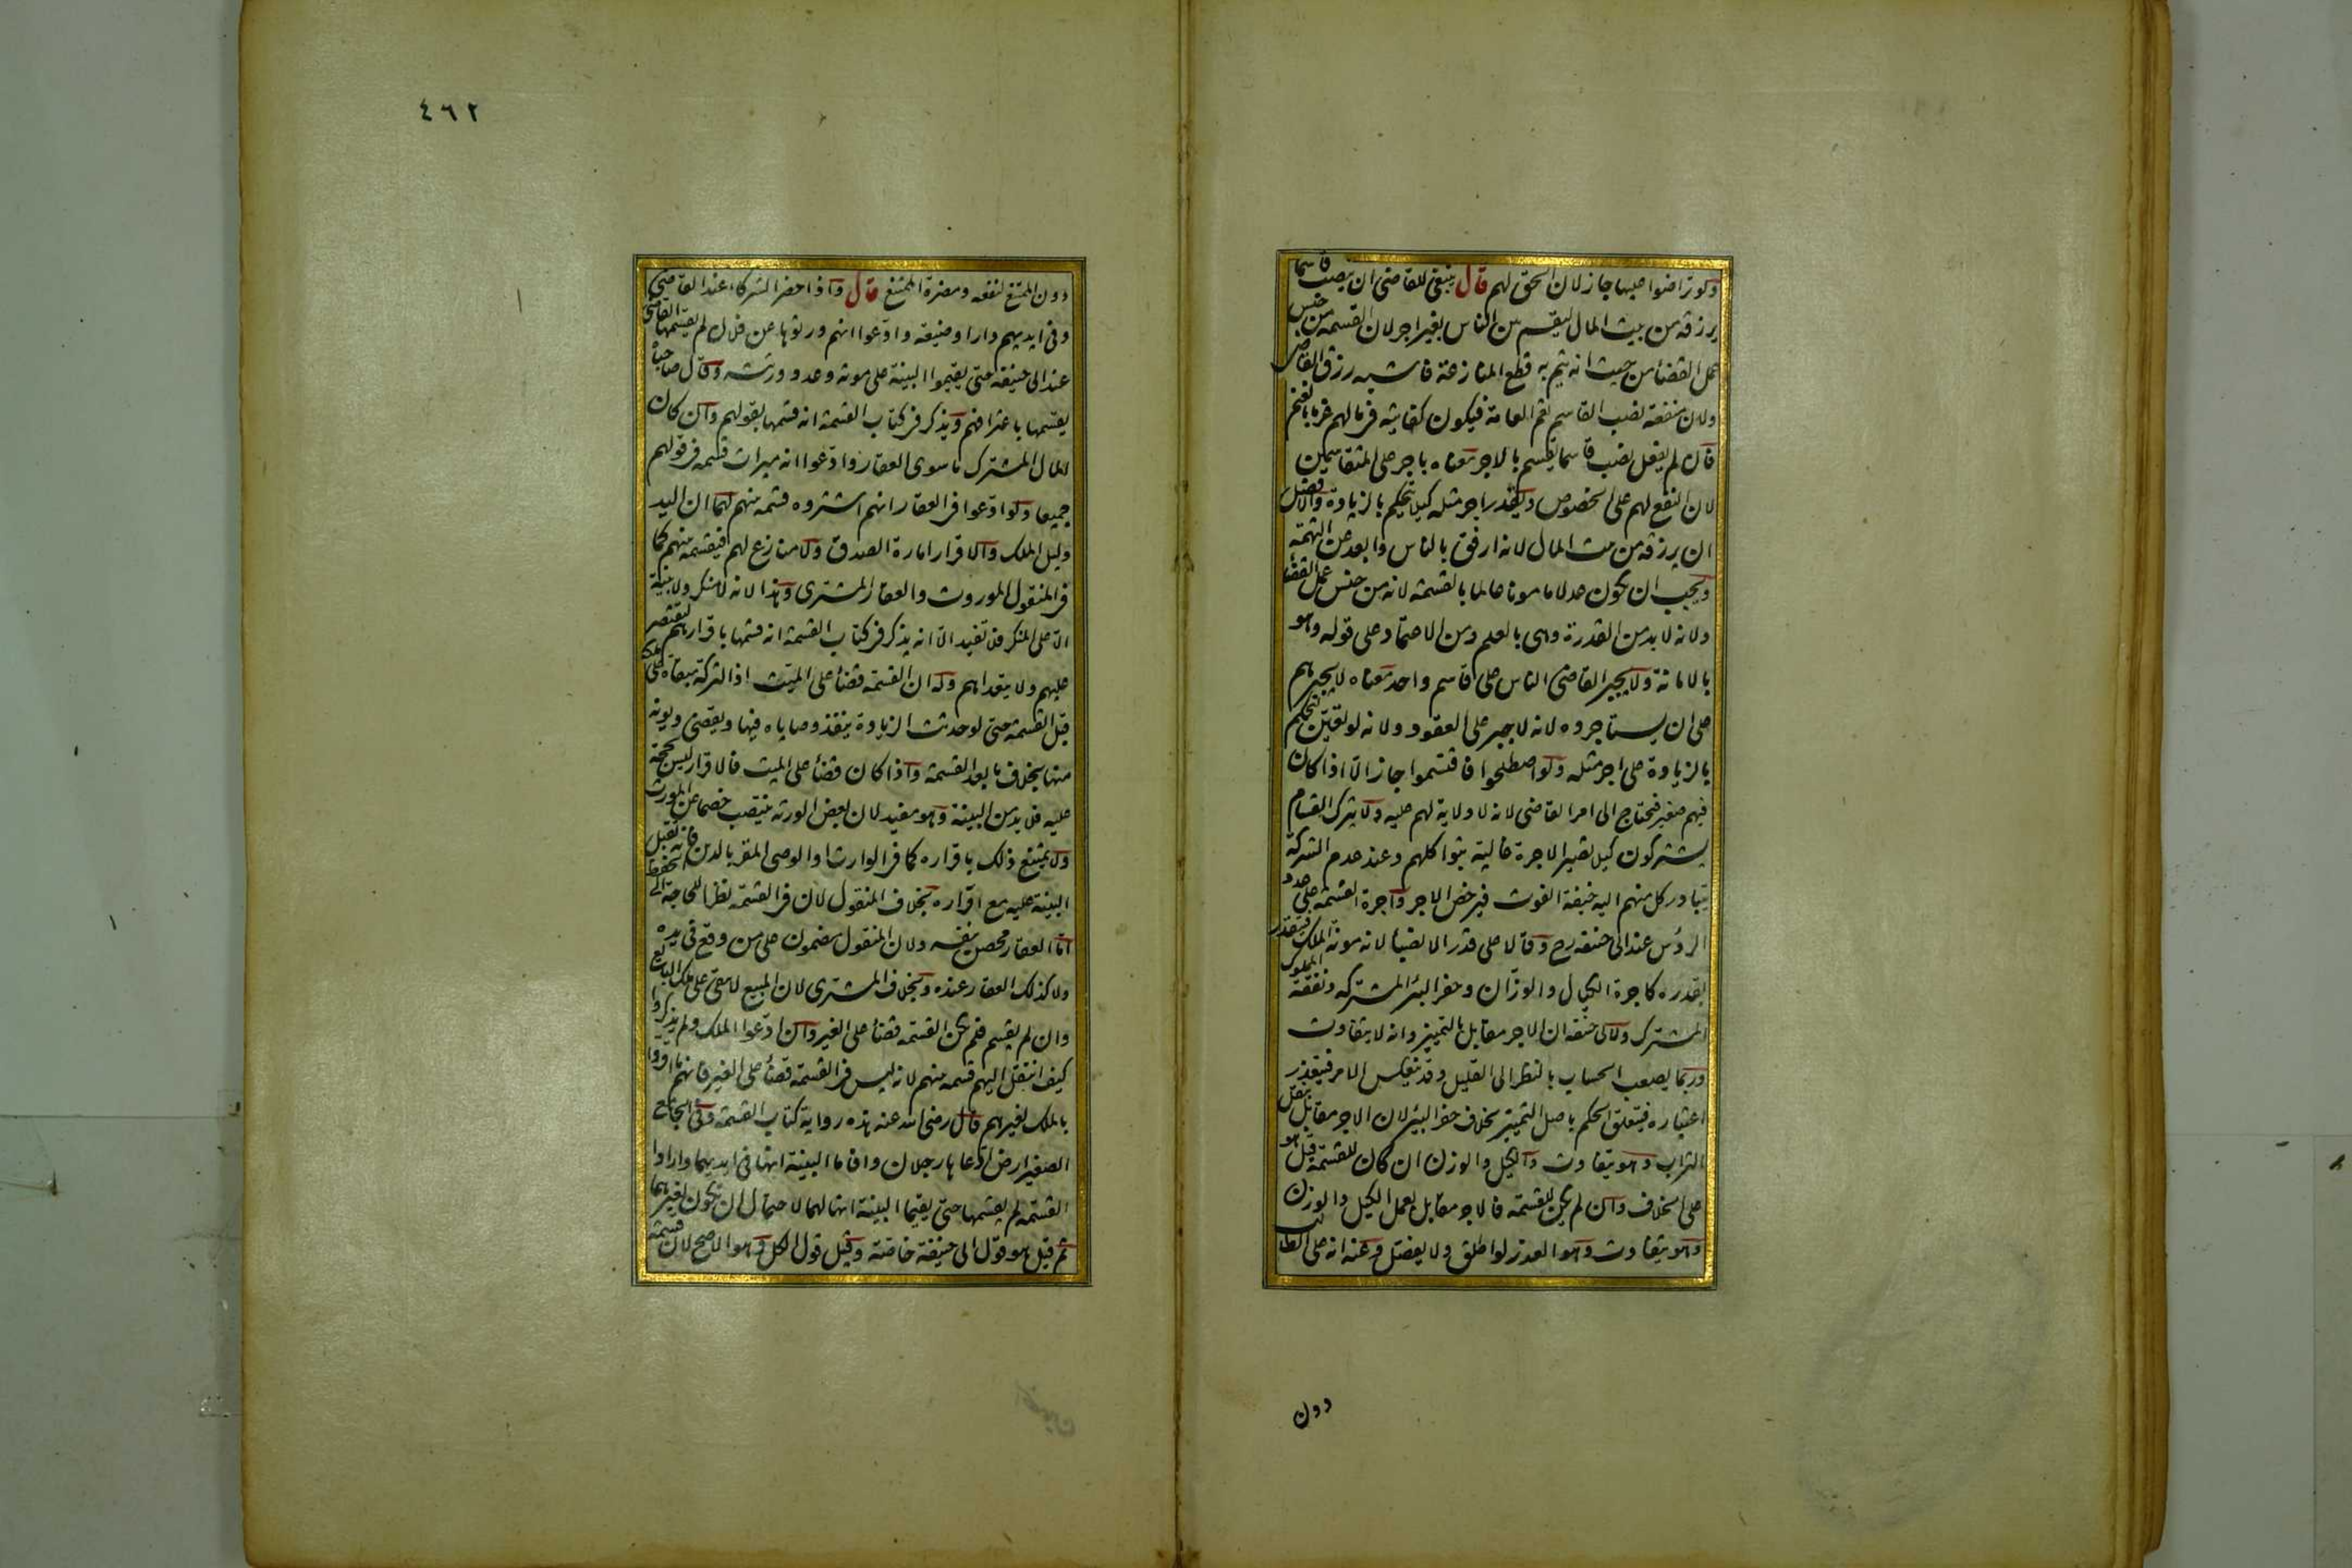 ولو تراضوا عليها جاز لان الحق لهم قال ينبغي للقاضي ان ينصب قاسما
يرزقه من بيت المال ليقسم بين الناس بغير اجر لان القسمة من جنس
عمل القضأ من حيث انه يتم به قطع المنازعة فاشبه رزق القاضي
ولان منفعة نصب القاسم تعم العامة فيكون كفايته في مالهم غرما بالغنم
قال لم يفعل نصب قاسما يقسم بالاجر معناه باجر على المتقاسمين
لان النفع لهم على الخصوص ويقدر اجر مثله كيلا يتحكم بالزيادة والافضل
ان يرزقه من بيت المال لانه ارفق بالناس وابعد عن التهمة
ويجب ان يكون عدلا مامونا عالما بالقسمة لانه من جنس عمل القضأ
ولانه لا بد من القدرة وهي بالعلم ومن الاعتماد على قوله وهو
بالامانة ولا يجبر القاضي الناس على قاسم واحد معناه لا يجبرهم
على ان يستاجروه لانه لا جبر على العقود ولانه لو تعين لتحكم
بالزيادة على اجر مثله ولو اصطلحوا فاقتسموا جاز الا اذا كان
فيهم صغير فيحتاج الى امر القاضي لانه لا ولاية لهم عليه ولا يترك القسام
يشتركون كيلا تصير الاجرة غالية بتواكلهم وعند عدم الشركة
يتبادر كل منهم اليه خيفة الفوت فيرخص الاجر واجرة القسمة على عدد
الرؤس عند ابي حنيفه رح وقالا على قدر الانصبأ لانه مونة الملك فيتقدر
بقدره كاجرة الكيال والوزان وحفر البئر المشتركه ونفقة المملوك
المشترك ولابي حنيفه ان الاجر مقابل بالتمييز وانه لا يتفاوت
وربما يصعب الحساب بالنظر الى القليل وقد ينعكس الامر فيتعذر
اعتباره فيتعلق الحكم باصل التمييز بخلاف حفر البئر لان الاجر مقابل بنقل
التراب وهو يتفاوت والكيل والوزن ان كان للقسمة قيل هو
على الخلاف وان لم يكن للقسمه فالاجر مقابل بعمل الكيل والوزن
وهو يتفاوت وهو العذر لو اطلق ولا يفصل وعنه انه على الطالب
دون
٤٦٢
دون الممتنع لنفعه ومضرة الممتنع قال واذا حضر الشركاء عند القاضي
وفي ايديهم دار او ضيعه وادعوا انهم ورثوها عن فلان لم يقسمها القاضي
عند ابي حنيفة حتى يقيموا البينة على موته وعدد ورثته وقال صاحباه
يقسمها باعترافهم ويذكر في كتاب القسمة انه قسمها بقولهم وان كان
المال المشترك ما سوى العقار وادعوا انه ميراث قسمه في قولهم
جميعا ولو ادعوا في العقار انهم اشتروه قسمه بينهم لهما ان اليد
دليل الملك والاقرار امارة الصدق ولا منازع لهم فيقسمه بينهم كما
في المنقول الموروث والعقار المشترى وهذا لانه لا منكر ولا بينة
الا على المنكر فلا تفيد الا انه يذكر في كتاب القسمة انه قسمها باقرارهم ليقتصر
عليهم ولا يتعداهم وله ان القسمة قضأ على الميت اذ التركة مبقاة على ملكه
قبل القسمة حتى لو حدثت الزيادة ينفذ وصاياه فيها ويقضي ديونه
منها بخلاف ما بعد القسمة واذا كان قضأ على الميت فالاقرار ليس بحجة
عليه فلا بد من البينة وهو مفيد لان بعض الورثه ينتصب خصما عن المورث
ولا يمتنع ذلك باقراره كما في الوارث او الوصي المقر بالدين فانه تقبل
البينة عليه مع اقراره بخلاف المنقول لان في القسمة نظرا للحاجة الى الحفظ
اما العقار محصن بنفسه ولان المنقول مضمون على من وقع في يده
ولا كذلك العقار عنده وبخلاف المشترى لان المبيع لا يبقى على ملك البائع
وان لم يقسم فلم يكن القسمة قضأ على الغير وان ادعوا الملك ولم يذكروا
كيف انتقل اليهم قسمه بينهم لانه ليس في القسمة قضأ على الغير فانهم ما اقروا
بالملك لغيرهم قال رضي الله عنه هذه رواية كتاب القسمة وفي الجامع
الصغير ارض ادعاها رجلان واقاما البينة انها في ايديهما وارادا
القسمة لم يقسمها حتى يقيما البينة انها لهما لاحتمال ان تكون لغيرهما
ثم قيل هو قول ابي حنيفة خاصة وقيل قول الكل وهو الاصح لان قسمة